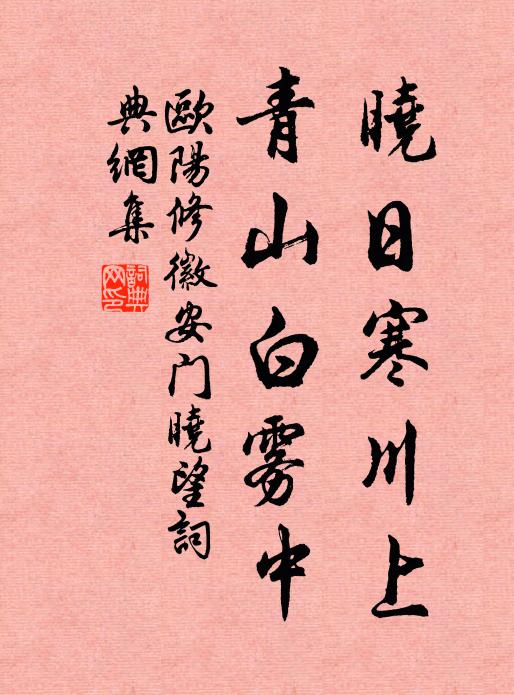 曉日寒川上
青山白雾中
歐陽修徽安門曉望詞
典網集
詞典網印